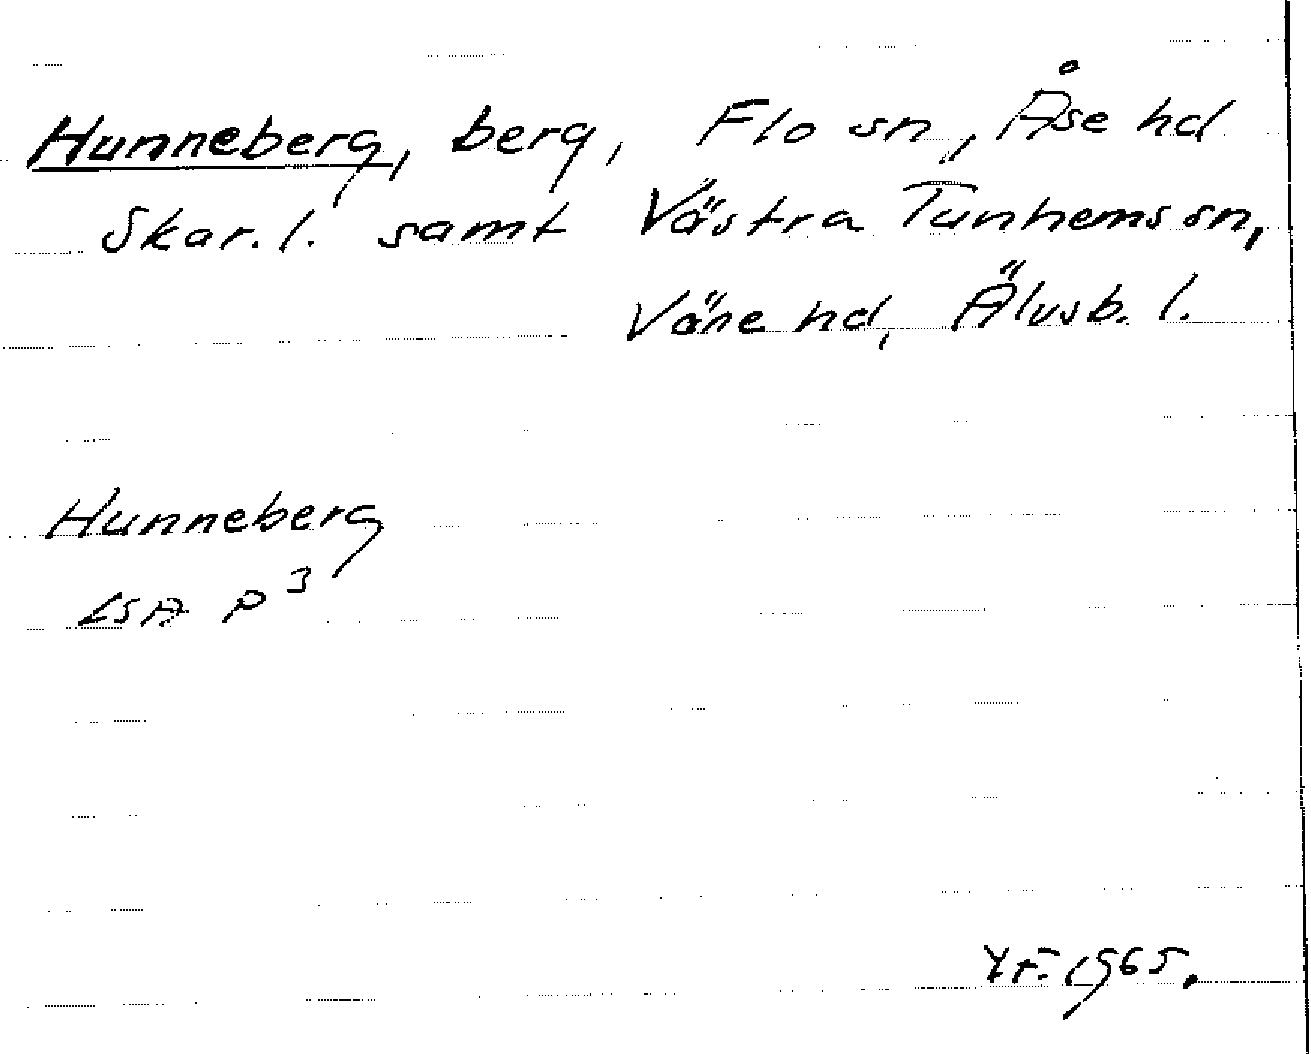 Hunneberg, berg, Flo sn, Åse hd
Skar. l. samt Västra Tunhems sn,
Väne hd, Älvsb. l.
Hunneberg
LSA P 3
YF. 1965.